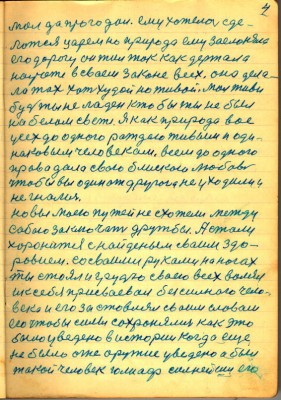 4
мол да прогодал. ему хотелос сде-
лотся царем но природа ему заслоняла
его дорогу он жил ток как держала
натуте в своем законе всех. она дела-
ла так хот худой но живой. мол живи
буд ты не ладен кто бы ты не был
на белом свете. Я как природа вас
усех до одного раждаю живым и оди-
наковым человеком, всем до одного
проводала свою близкою любовь
чтобы вы один от другого не уходили и
не гналис.
новы моею путей не схотели между
собою заключать дружбы. А стали
хоронится с найденым своим здо-
ровием. со своими рукоми на ногах
ты стоял и грудю своею всех волял
и к себе присваевал бесилного чело-
века и его заставлял своими словами
его чтобы силы сохронялис как это
было уведено в истории когда ещё
не было оне оружие уведено а был
такой человек голиаф силнейшу его